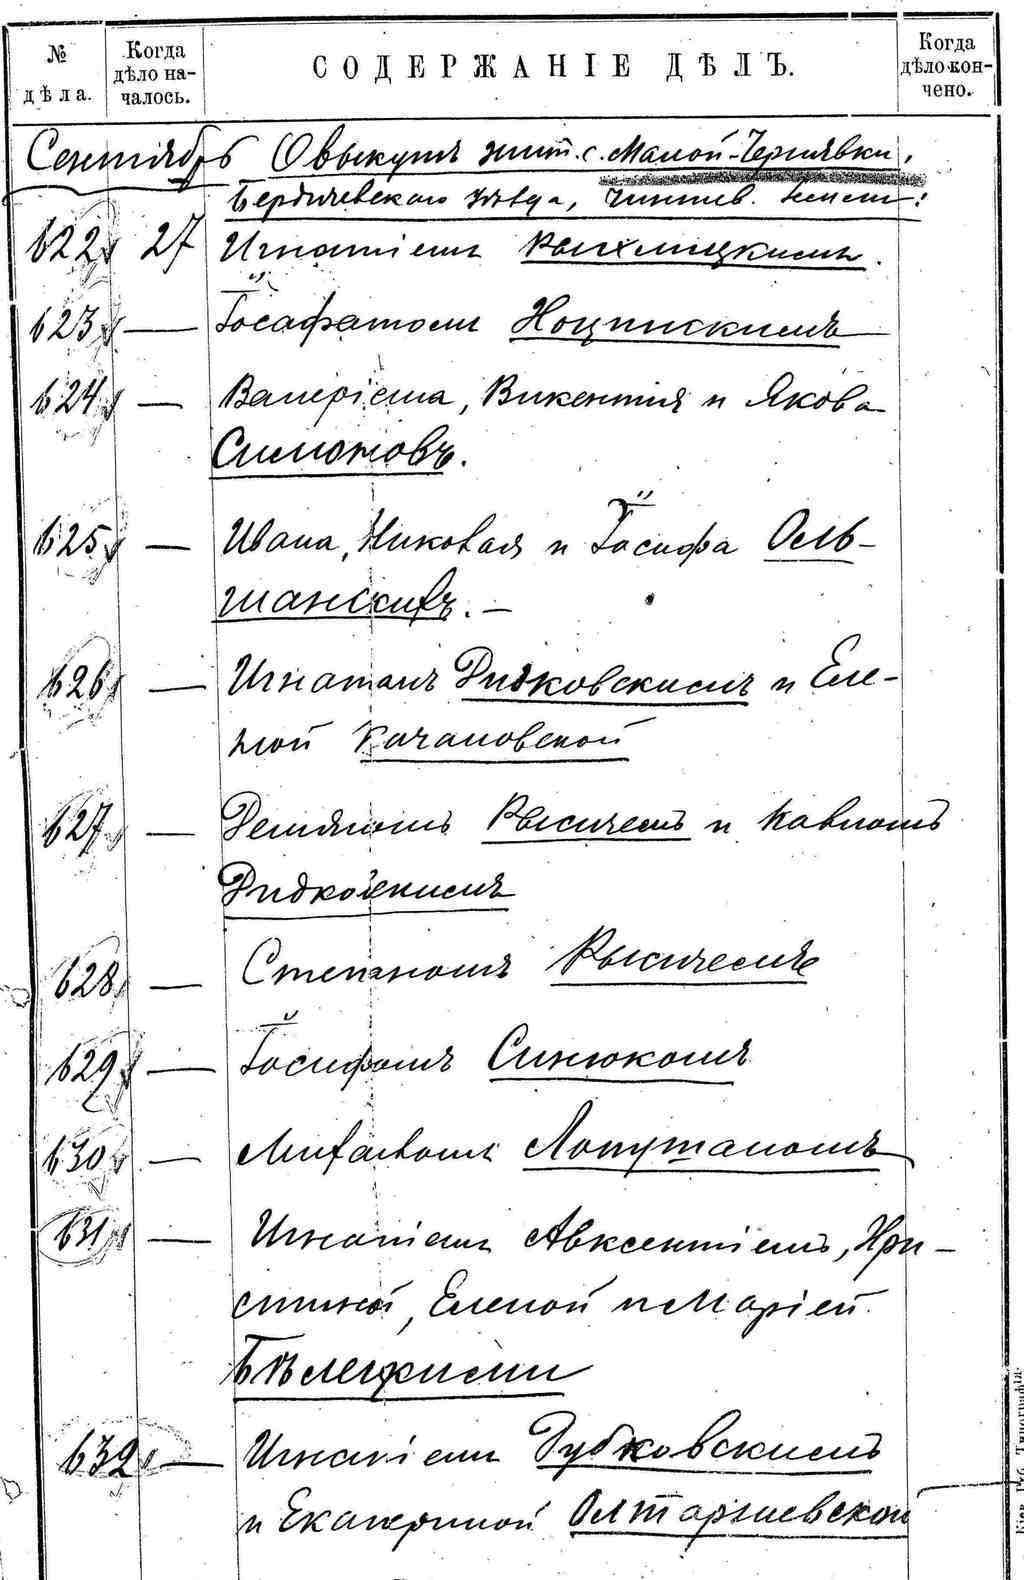 № дѣла.
Когда дѣло началось.
СОДЕРЖАНІЕ ДѢЛЪ.
Когда дѣло кончено.
Сентябрь О выкупѣ жит. с. Малой-Чернявки,
Бердичевскаго уѣзда, чиншев. земель:
622 27 Игнатіемъ Рыхлицкимъ.
623 — Іосафатомъ Ноцинскимъ
624 — Валеріяна, Викентія и Якова
Симоновъ.
625 — Ивана, Николая и Іосифа Оль-
шанскихъ. —
626 — Игнатомъ Рудковскимъ и Еле-
ной Качановской
627 — Демяномъ Рысичемъ и Павломъ
Рудковскимъ
628 — Степаномъ Рысичемъ
629 — Іосифомъ Синюкомъ
630 — Михаиломъ Лопушаномъ
631 — Игнатіемъ Авксентіемъ, Кри-
стиной, Еленой и Маріей
Бѣлецкими
632 — Игнатіемъ Рудковскимъ
и Екатериной Олтаржевской
Кіев. Губ. Типографія.